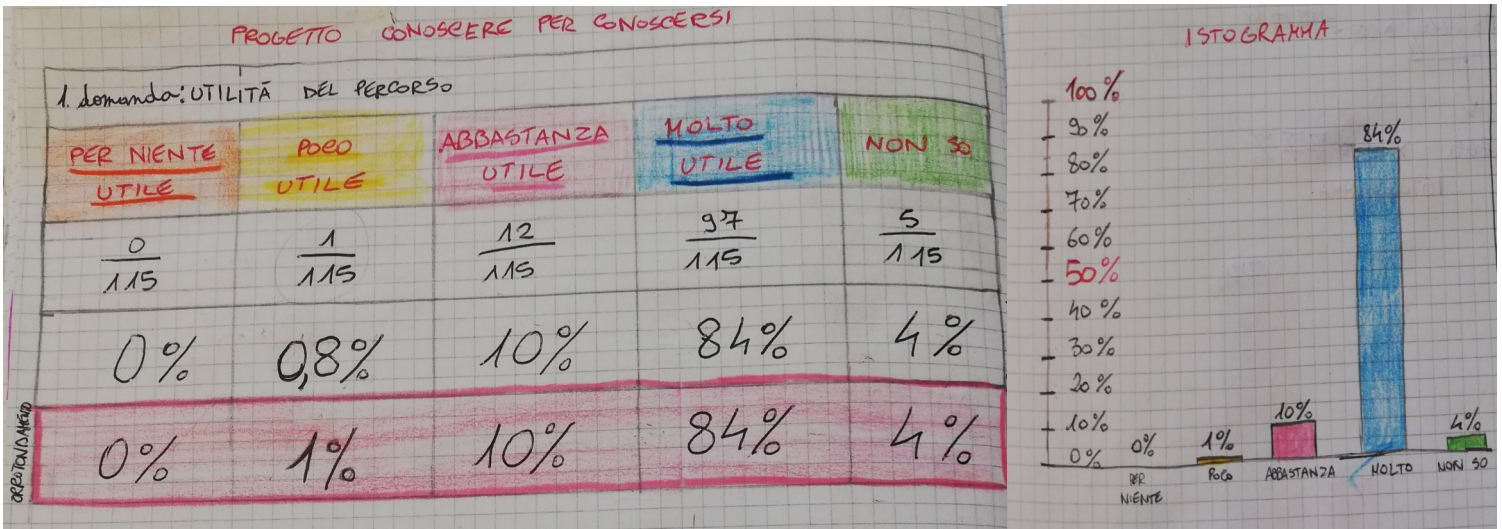 PROGETTO CONOSCERE PER CONOSCERSI
1. domanda: UTILITÀ DEL PERCORSO
PER NIENTE UTILE
POCO UTILE
ABBASTANZA UTILE
MOLTO UTILE
NON SO
0/115 1/115 12/115 97/115 5/115
0% 0,8% 10% 84% 4%
ARROTONDAMENTO
0% 1% 10% 84% 4%
ISTOGRAMMA
100%
90%
80%
70%
60%
50%
40%
30%
20%
10%
0%
0% 1% 10% 84% 4%
PER NIENTE
POCO
ABBASTANZA
MOLTO
NON SO